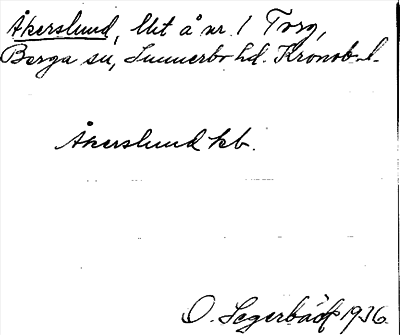 Åkerslund, lht å nr 1 Torg,
Berga sn, Sunnerbo hd. Kronob. l.
Åkerslund kb.
O. Segerbäck 1936.